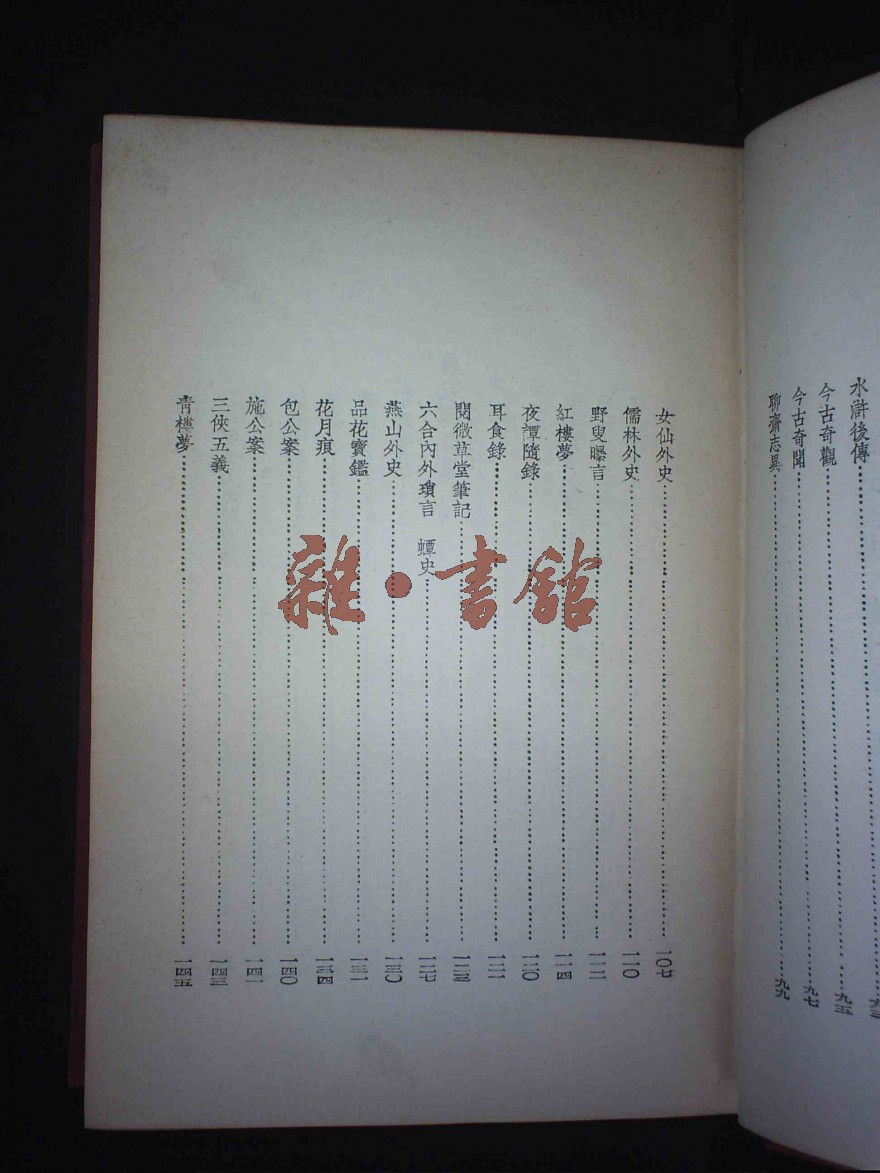 水滸後傳……九三
今古奇觀……九五
今古奇聞……九七
聊齋志異……九九
女仙外史……一〇七
儒林外史……一一〇
野叟曝言……一一二
紅樓夢……一一四
夜譚隨錄……一二〇
耳食錄……一二一
閱微草堂筆記……一二三
六合內外瑣言　蟫史……一二七
燕山外史……一三〇
品花寶鑑……一三一
花月痕……一三四
包公案……一四〇
施公案……一四一
三俠五義……一四三
青樓夢……一四五
雜·書館